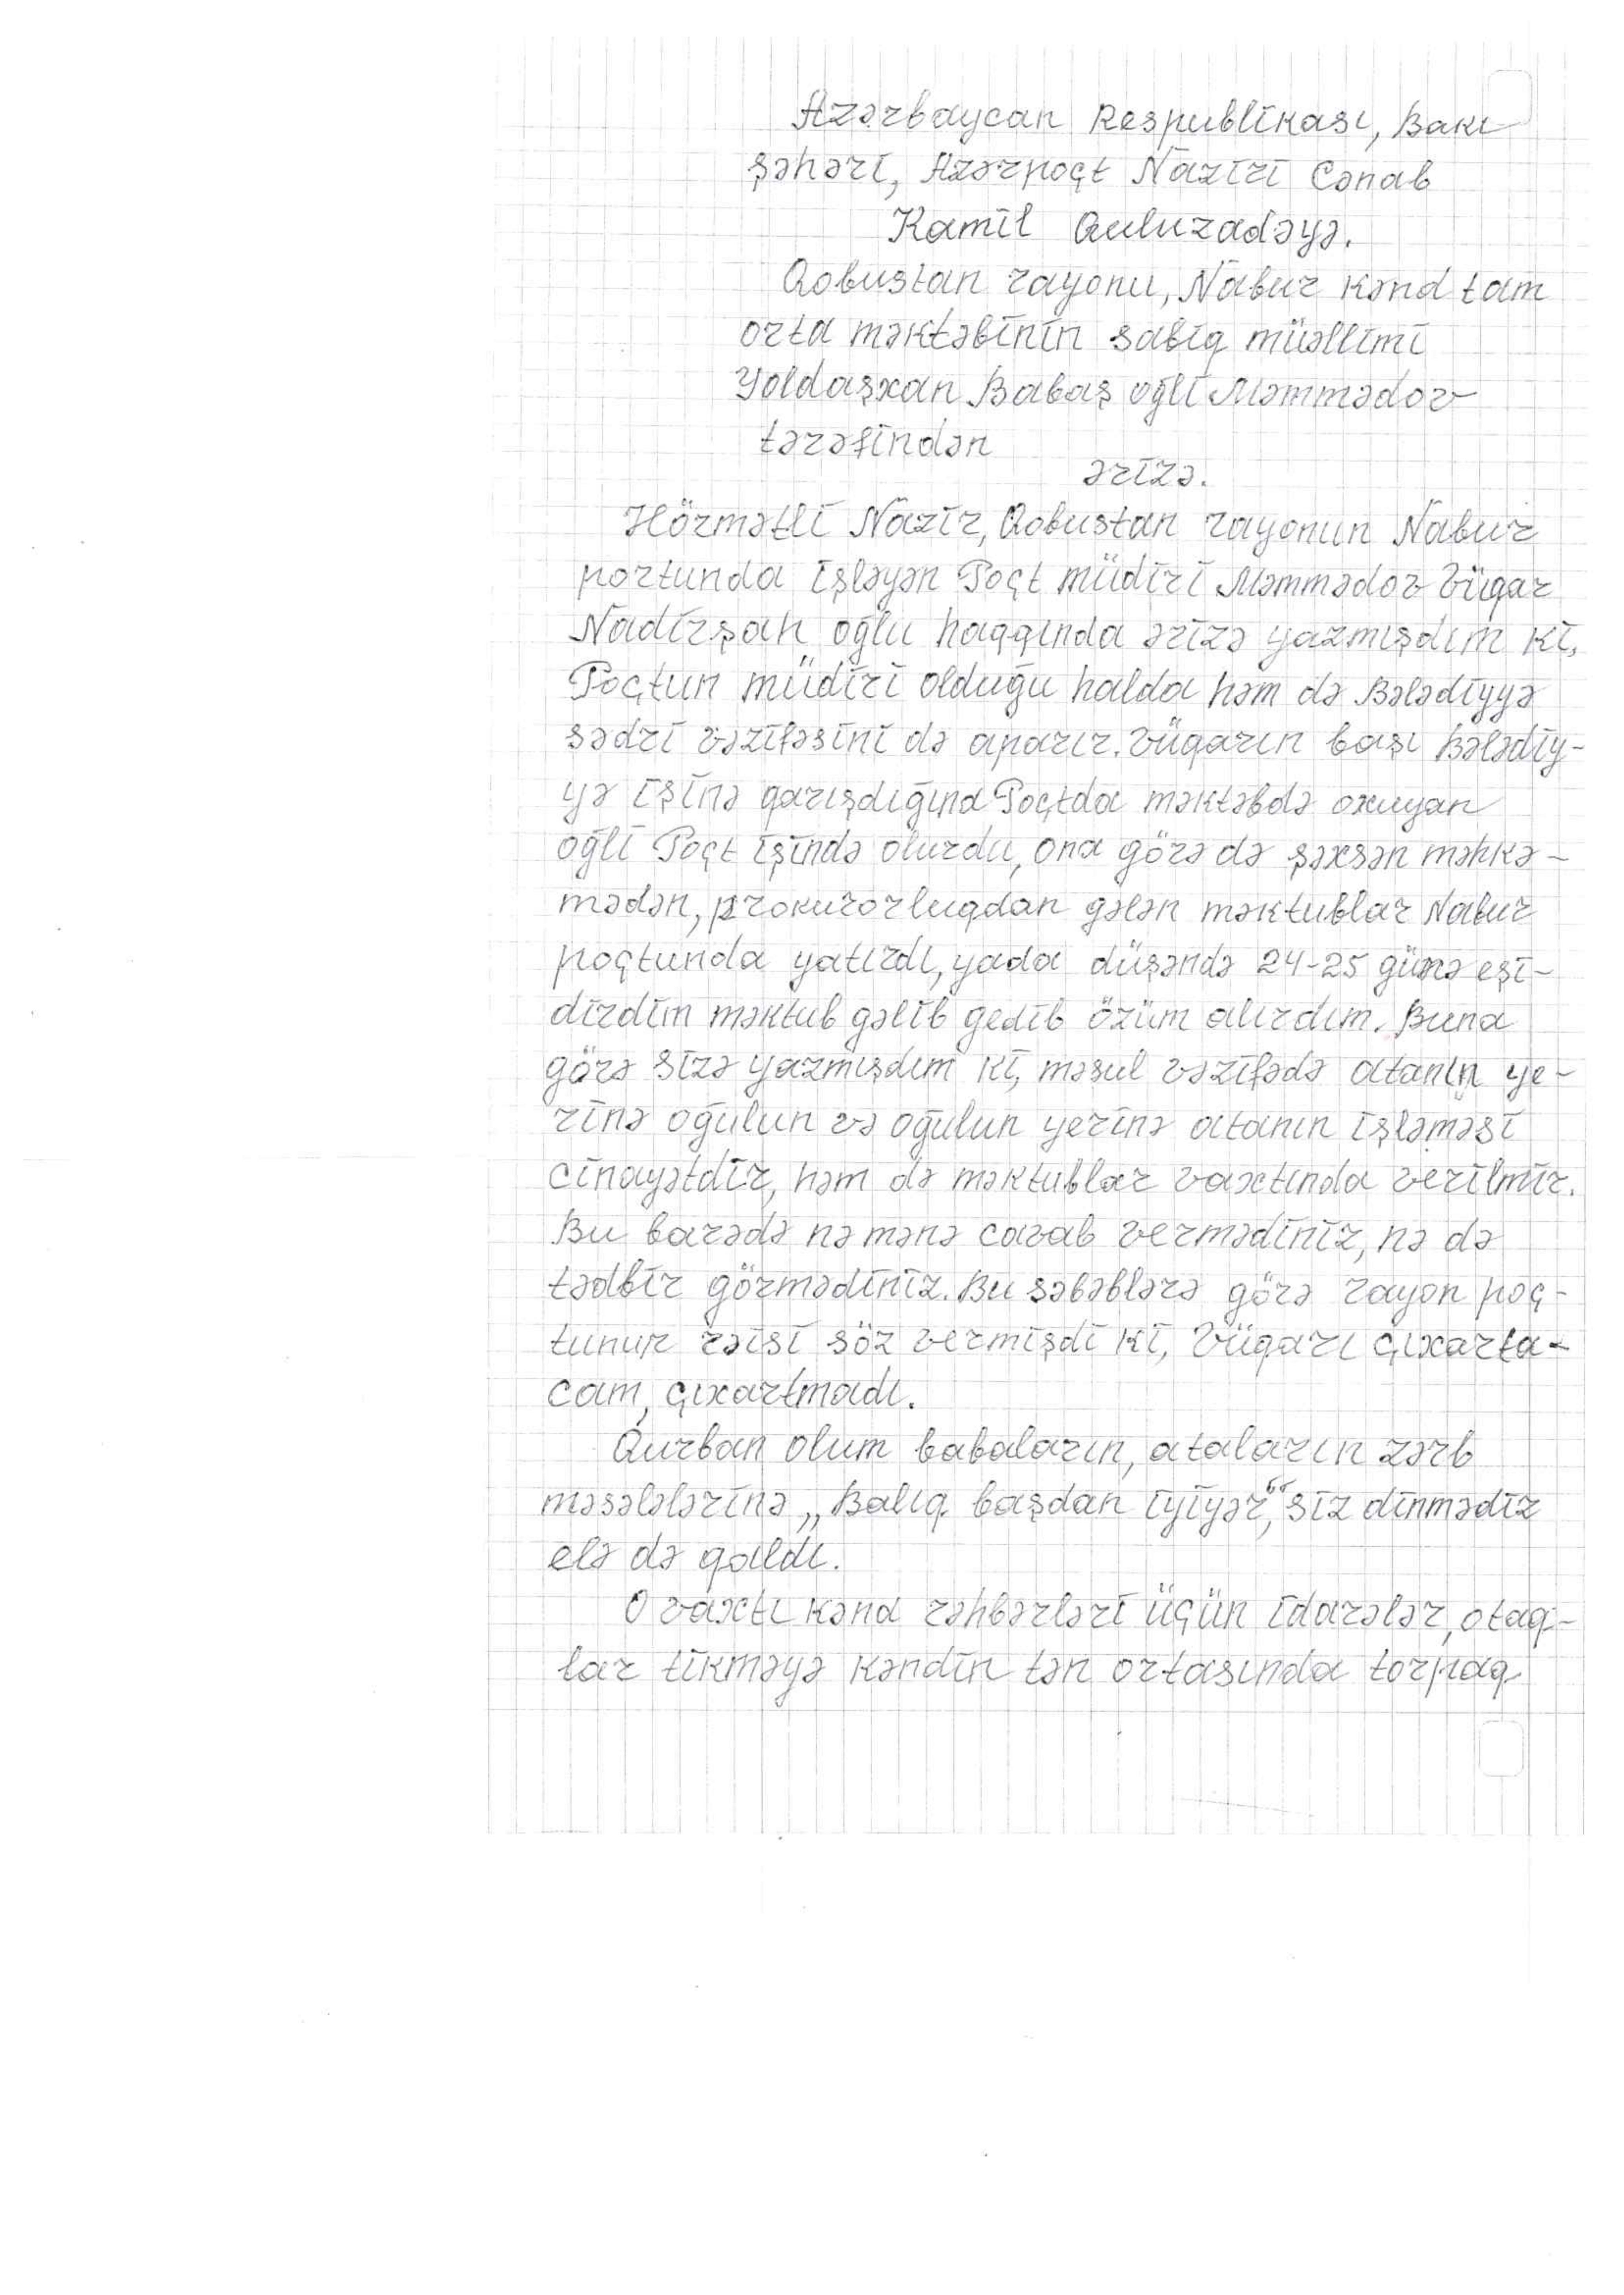 Azərbaycan Respublikası, Bakı
şəhəri, Azərpoçt Naziri Cənab
Kamil Quluzadəyə.
Qobustan rayonu, Nabur kənd tam
orta məktəbinin sabiq müəllimi
Yoldaşxan Babaş oğli Məmmədov
tərəfindən
ərizə.
Hörmətli Nazir, Qobustan rayonun Nabur
portunda işləyən Poçt müdiri Məmmədov Vüqar
Nadirşah oğlu haqqında ərizə yazmışdım ki,
Poçtun müdiri olduğu halda həm də Bələdiyyə
sədri vəzifəsini də aparır. Vüqarın başı Bələdiy-
yə işinə qarışdığına Poçtda məktəbdə oxuyan
oğli Poçt işində olurdu, ona görə də şəxsən məhkə-
mədən, prokurorluqdan gələn məktublar Nabur
poçtunda yatırdı, yada düşəndə 24-25 günə eşi-
dirdim məktub gəlib gedib özüm alırdım. Buna
görə sizə yazmışdım ki, məsul vəzifədə atanın ye-
rinə oğulun və oğulun yerinə atanın işləməsi
cinayətdir, həm də məktublar vaxtında verilmir.
Bu barədə nə mənə cavab vermədiniz, nə də
tədbir görmədiniz. Bu səbəblərə görə rayon poç-
tunun rəisi söz vermişdi ki, Vüqarı çıxarta-
cam, çıxartmadı.
Qurban olum babaların, ataların zərb
məsələlərinə „Balıq başdan iyiyər“, siz dinmədiz
elə də qaldı.
O vaxtı kənd rəhbərləri üçün idarələr, otaq-
lar tikməyə kəndin tən ortasında torpaq